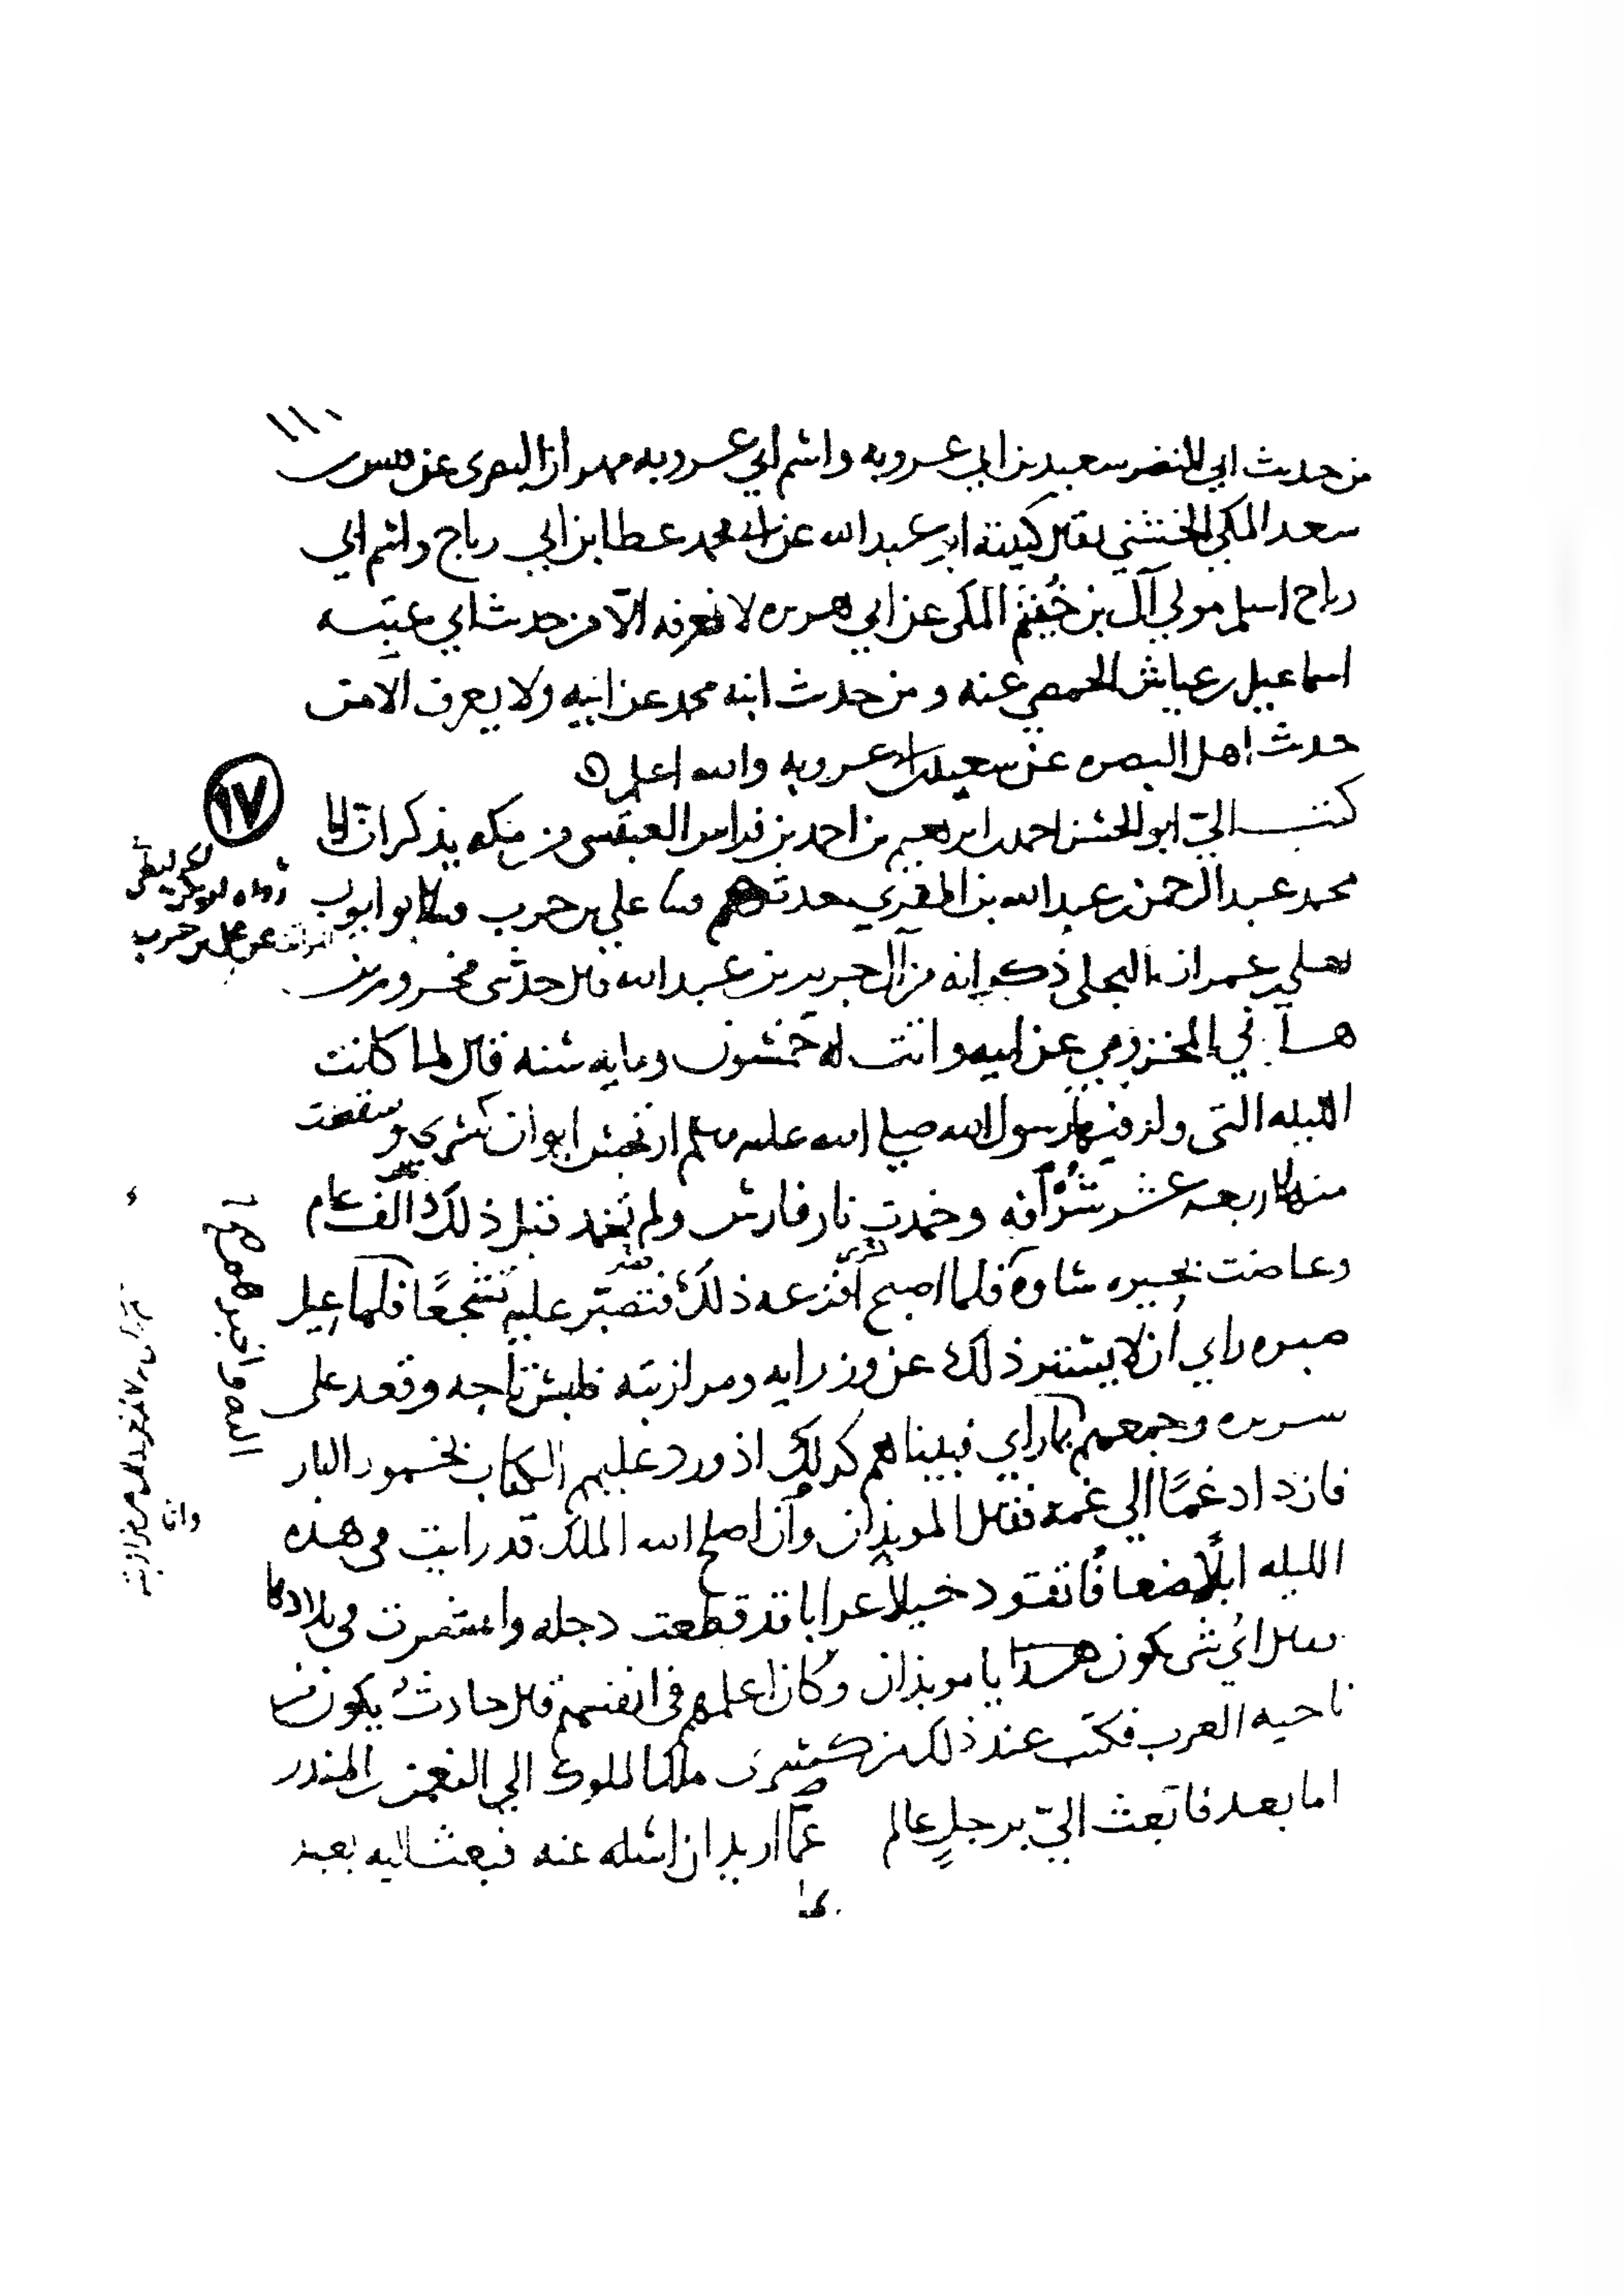 من حديث ابي النضر سعيد بن ابي عروبه واسم ابي عروبه مهران البصري عن قيس بن
سعد المكي الحبشي يقال كنيته ابو عبد الله عن ابي محمد عطا بن ابي رباح واسم ابي
رباح اسلم مولي آل بن خُثيم المكي عن ابي هريره لا نعرفه الّا من حديث ابي عتبه
اسماعيل بن عياش الحمصي عنه ومن حديث ابنه محمد عن ابيه ولا يعرف الا من
حديث اهل البصره عن سعيد بن ابي عروبه والله اعلم
كتب اليّ ابو الحسن احمد بن ابرهيم بن احمد بن فراس العبقسي من مكه يذكر ان ابا
محمد عبد الرحمن بن عبد الله بن المقري حدثهم ثنا علي بن حرب ثنا ابو ايوب
يعلي بن عمران البجلي ذكر انه من آل جرير بن عبد الله قال حدثني مخزوم بن
هاني المخزومي عن ابيه واتت له خمسون ومايه سنه قال لما كانت
الليله التي ولد فيها رسول الله صلي الله عليه وسلم ارتجس ايوان كسري وسقطت
منه اربعه عشر شُرّافه وخمدت نار فارس ولم تخمد قبل ذلك الف عام
وغاضت بحيره ساوه فلما اصبح كسرى افزعه ذلك فتصبّر عليه تشجعًا فلما عيل
صبره راي ان لا يستتر ذلك عن وزرايه ومرازبته فلبس تاجه وقعد على
سريره وجمعهم بما راي فبينا هم كذلك اذ ورد عليهم الكتاب بخمود النار
فازداد غمًا الي غمه فقال الموبذان وانا اصلح الله الملك قد رايت في هذه
الليله ابلًا صعابًا تقود خيلًا عرابا قد قطعت دجله وانتشرت في بلادها
فقال ايُ شي يكون هذا يا موبذان وكان اعلمهم في انفسهم قال حادثٌ يكون من
ناحيه العرب فكتب عند ذلك من كسرى ملك الملوك الي النعمن بن المنذر
اما بعد فابعث اليّ برجلٍ عالم عمّا اريد ان اسله عنه فبعث اليه بعبد
١٧
رواه
عن علي بن حرب
وانا